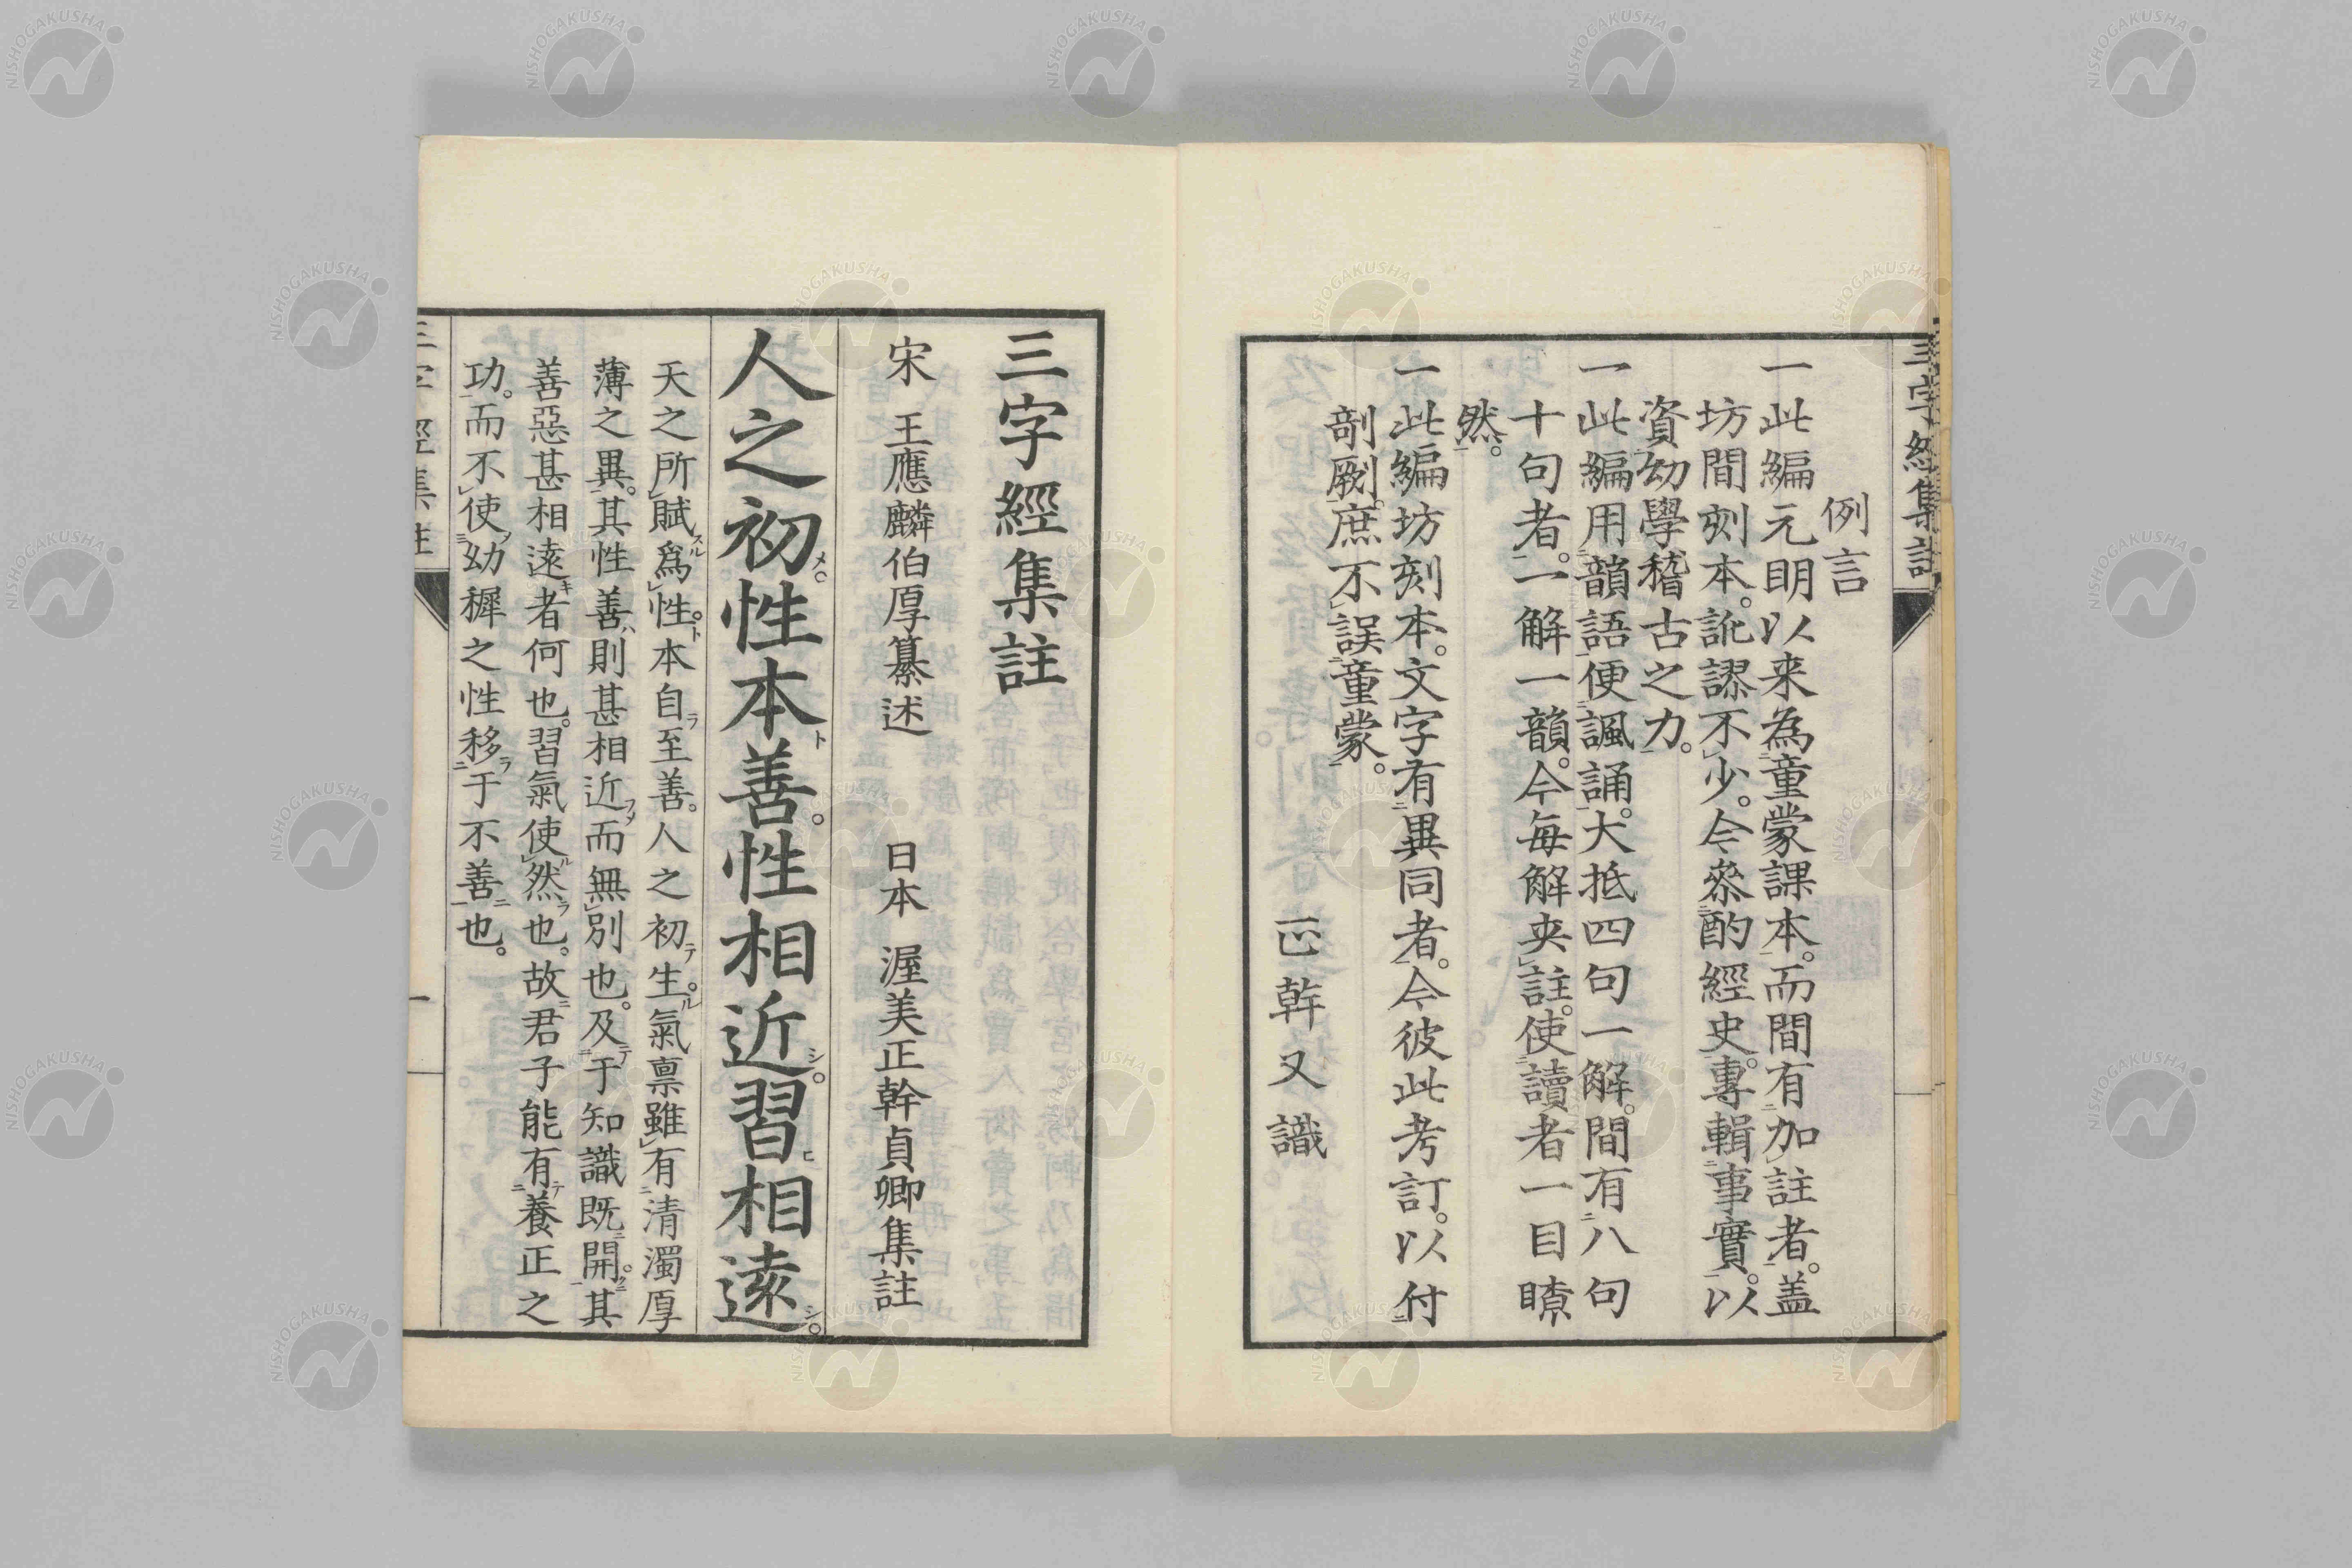 三字經集註
例言
一此編元明以来為童蒙課本。而間有加註者。盖
坊間刻本。訛謬不少。今叅酌經史。專輯事實。以
資幼學稽古之力。
一此編用韻語便諷誦。大抵四句一解。間有八句
十句者。一解一韻。今每解夾註。使讀者一目瞭
然。
一此編坊刻本。文字有異同者。今彼此考訂。以付
剞劂。庶不誤童蒙。
正幹又識
三字經集註
宋 王應麟伯厚纂述 日本 渥美正幹貞卿集註
人之初メ。性本ト善。性相近シ。習ヒ相遠シ。
天之所賦スル爲性。ト本自ラ至善。人之初テ生ル。氣禀雖有清濁厚
薄之異。其性善ハ則甚相近フメ而無別也。及テ于知識既ニ開ク。其
善惡甚相遠キ者何也。習氣使ル然ラ也。故ニ君子能有テ養正之
功。而不使ヲ幼穉之性移ラ于不善ニ也。
三字經集註
一
NISHOGAKUSHA